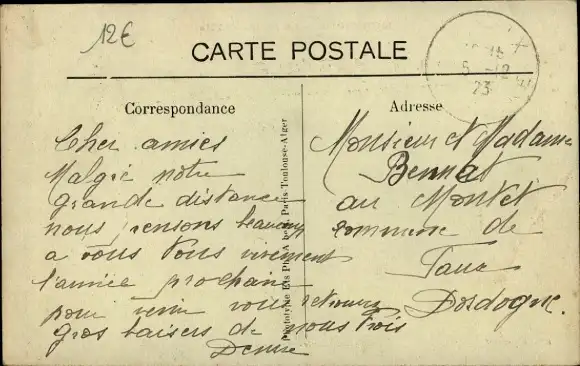 12€
CARTE POSTALE
Correspondance
Adresse
Cher amies
Malgré notre
grande distance
nous pensons beaucoup
a vous tous vivement
l'année prochaine
pour venir vous retrouver
gros baisers de nous trois
Denise
Phototypie Ets Ph. Paris-Toulouse-Alger
Monsieur et Madame
Bennat
au Montet
commune de
Dordogne.
5 -12
23